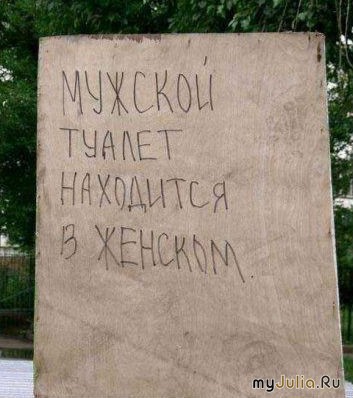 МУЖСКОЙ
ТУАЛЕТ
НАХОДИТСЯ
В ЖЕНСКОМ.
myJulia.Ru